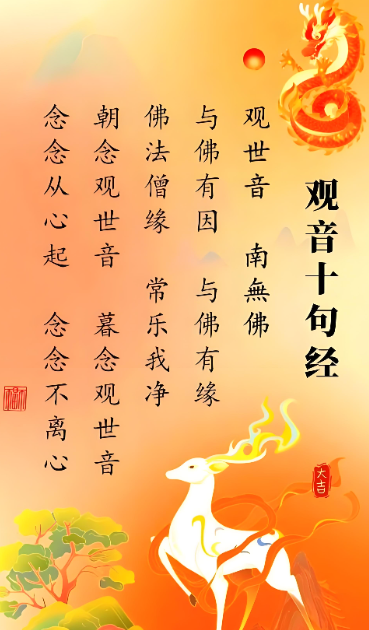 观音十句经
观世音 南無佛
与佛有因 与佛有缘
佛法僧缘 常乐我净
朝念观世音 暮念观世音
念念从心起 念念不离心
大吉